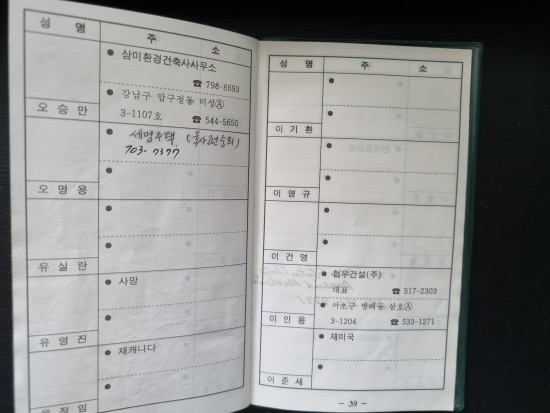 성 명 주 소
삼미환경건축사사무소
☎ 798-8693
강남구 압구정동 미성Ⓐ
오 승 만 3-1107호 ☎ 544-5650
세명주택
703-7377
오 명 용
유 실 란
사망
유 영 진
재캐나다
성 명 주 소
이 기 환
이 영 규
이 건 영
협우건설(주)
대표 ☎ 517-2303
서초구 방배동 삼호Ⓐ
이 인 용 3-1204 ☎ 533-1271
재미국
이 준 세
- 39 -